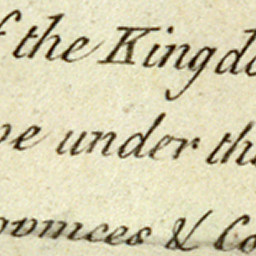 f the Kingdo
be under th
ovinces & Co